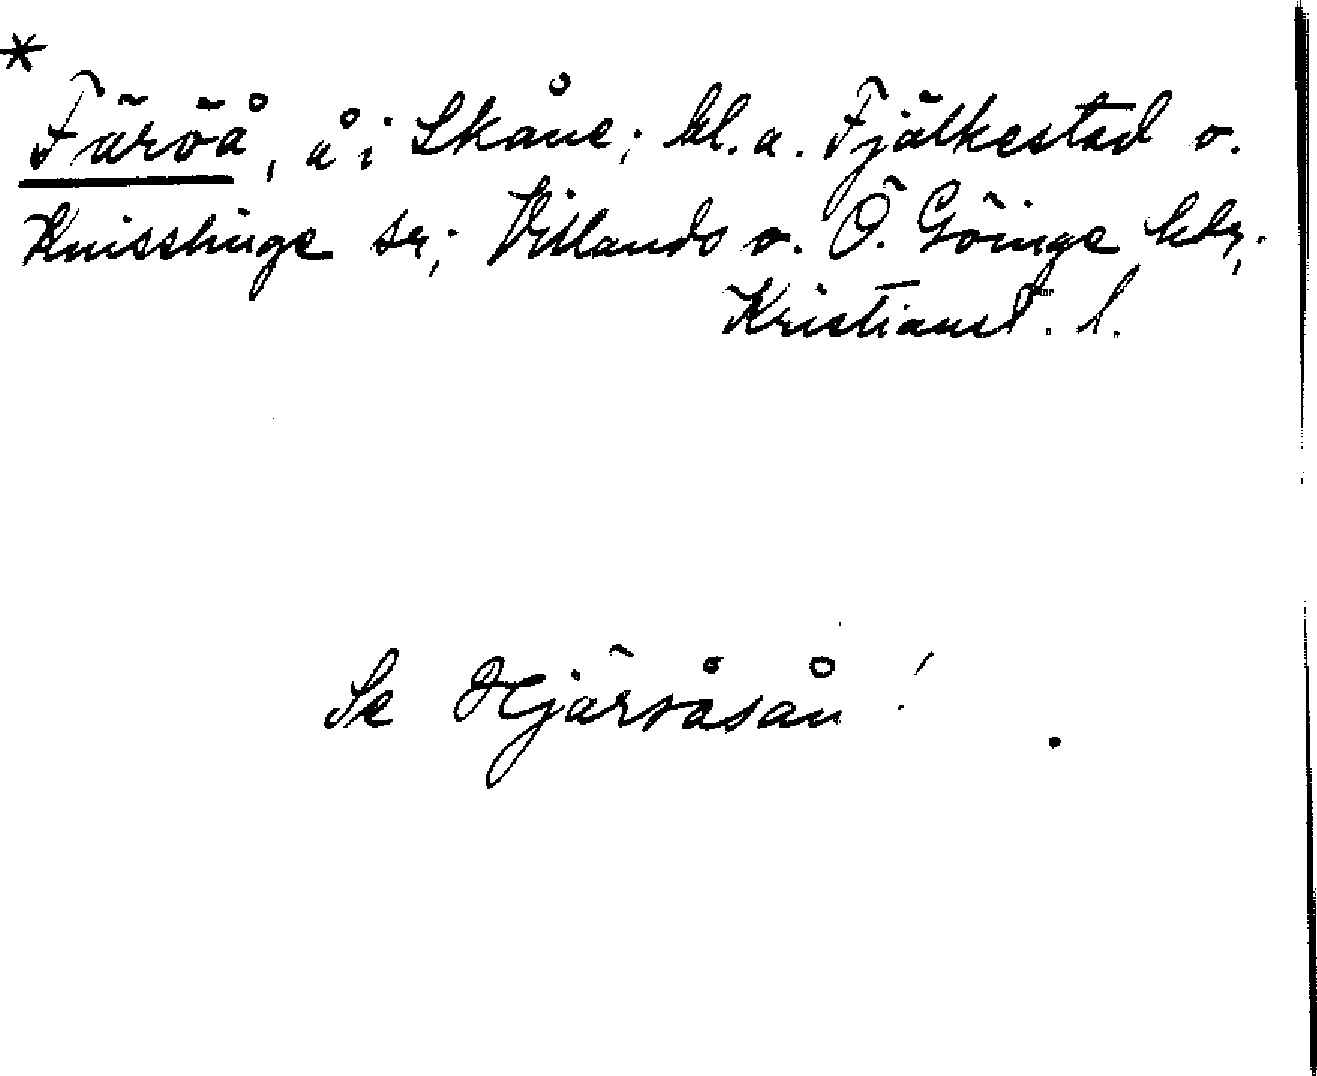 *
Färöå, å i Skåne; bl. a. Fjälkestad o.
Knisslinge sr; Villands o. Ö. Göinge hdr,
Kristianst. l.
Se Hjäråsån!